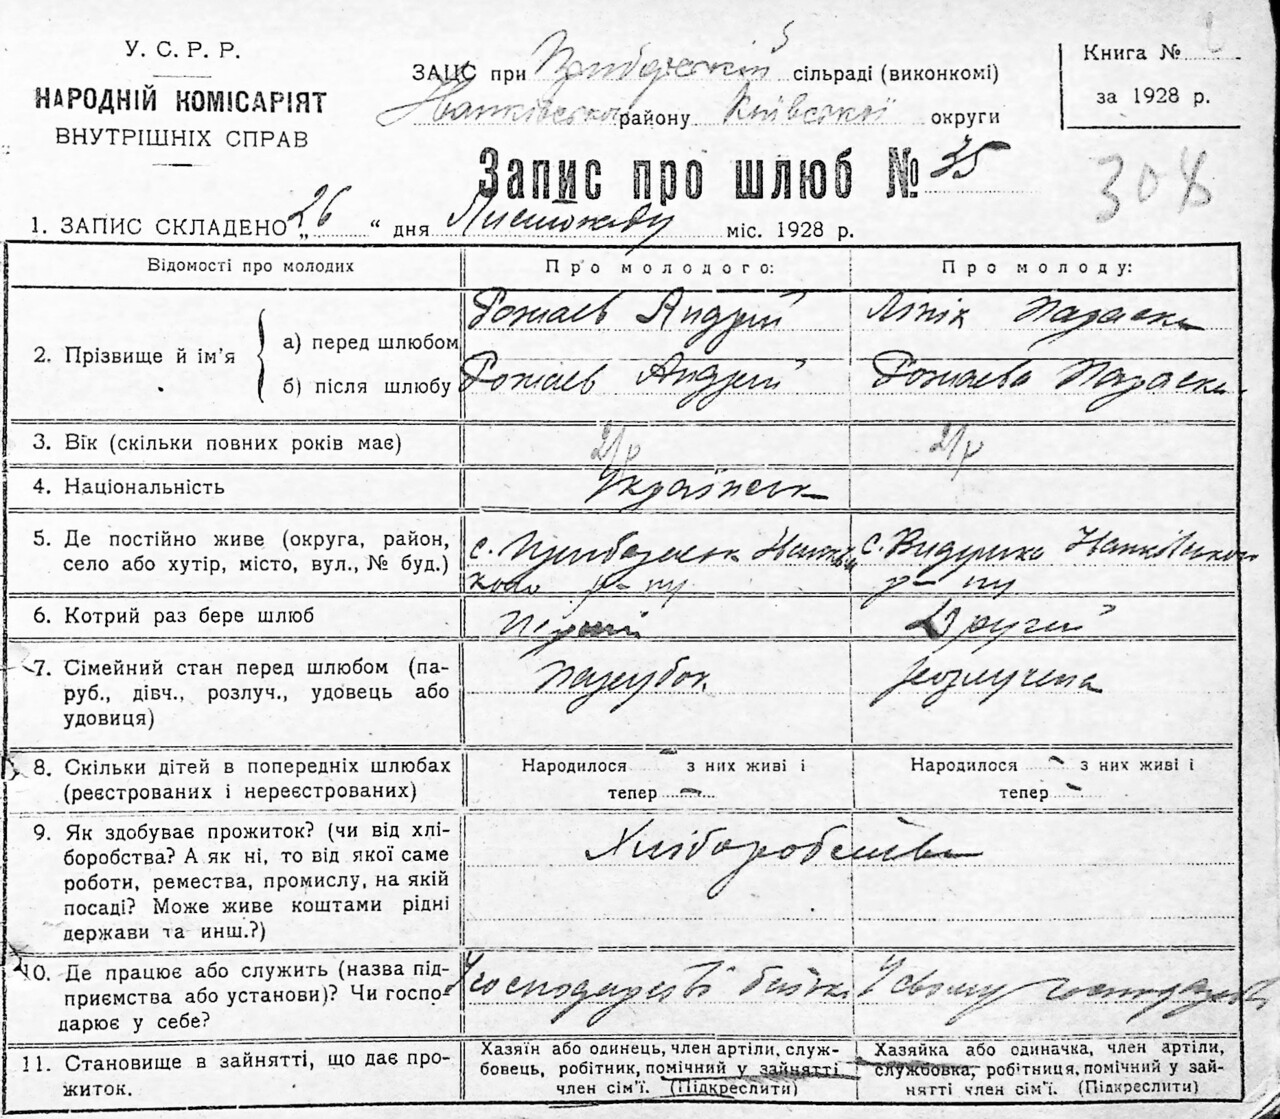 У. С. Р. Р.
НАРОДНІЙ КОМІСАРІЯТ
ВНУТРІШНІХ СПРАВ
ЗАЦС при сільраді (виконкомі)
району Київської округи
Книга №
за 1928 р.
Запис про шлюб № 35
308
1. ЗАПИС СКЛАДЕНО „26“ дня Листопаду міс. 1928 р.
Відомості про молодих
Про молодого:
Про молоду:
2. Прізвище й ім'я
а) перед шлюбом
Андрій
Параска
б) після шлюбу
Андрій
Параска
3. Вік (скільки повних років має)
21 р
21 р
4. Національність
Українськ
5. Де постійно живе (округа, район,
село або хутір, місто, вул., № буд.)
с.
р-ну
с.
р-ну
6. Котрий раз бере шлюб
Перший
Другий
7. Сімейний стан перед шлюбом (па-
руб., дівч., розлуч., удовець або
удовиця)
Парубок
розлучена
8. Скільки дітей в попередніх шлюбах
(реєстрованих і нереєстрованих)
Народилося - з них живі і
тепер -
Народилося - з них живі і
тепер -
9. Як здобуває прожиток? (чи від хлі-
боробства? А як ні, то від якої саме
роботи, ремества, промислу, на якій
посаді? Може живе коштами рідні
держави та инш.?)
Хліборобство
10. Де працює або служить (назва під-
приємства або установи)? Чи госпо-
дарює у себе?
У господарстві батька
У своему господарстві
11. Становище в зайнятті, що дає про-
житок.
Хазяїн або одинець, член артіли, служ-
бовець, робітник, помічний у зайнятті
член сім'ї. (Підкреслити)
Хазяйка або одиначка, член артіли,
службовка, робітниця, помічний у зай-
нятті член сім'ї. (Підкреслити)